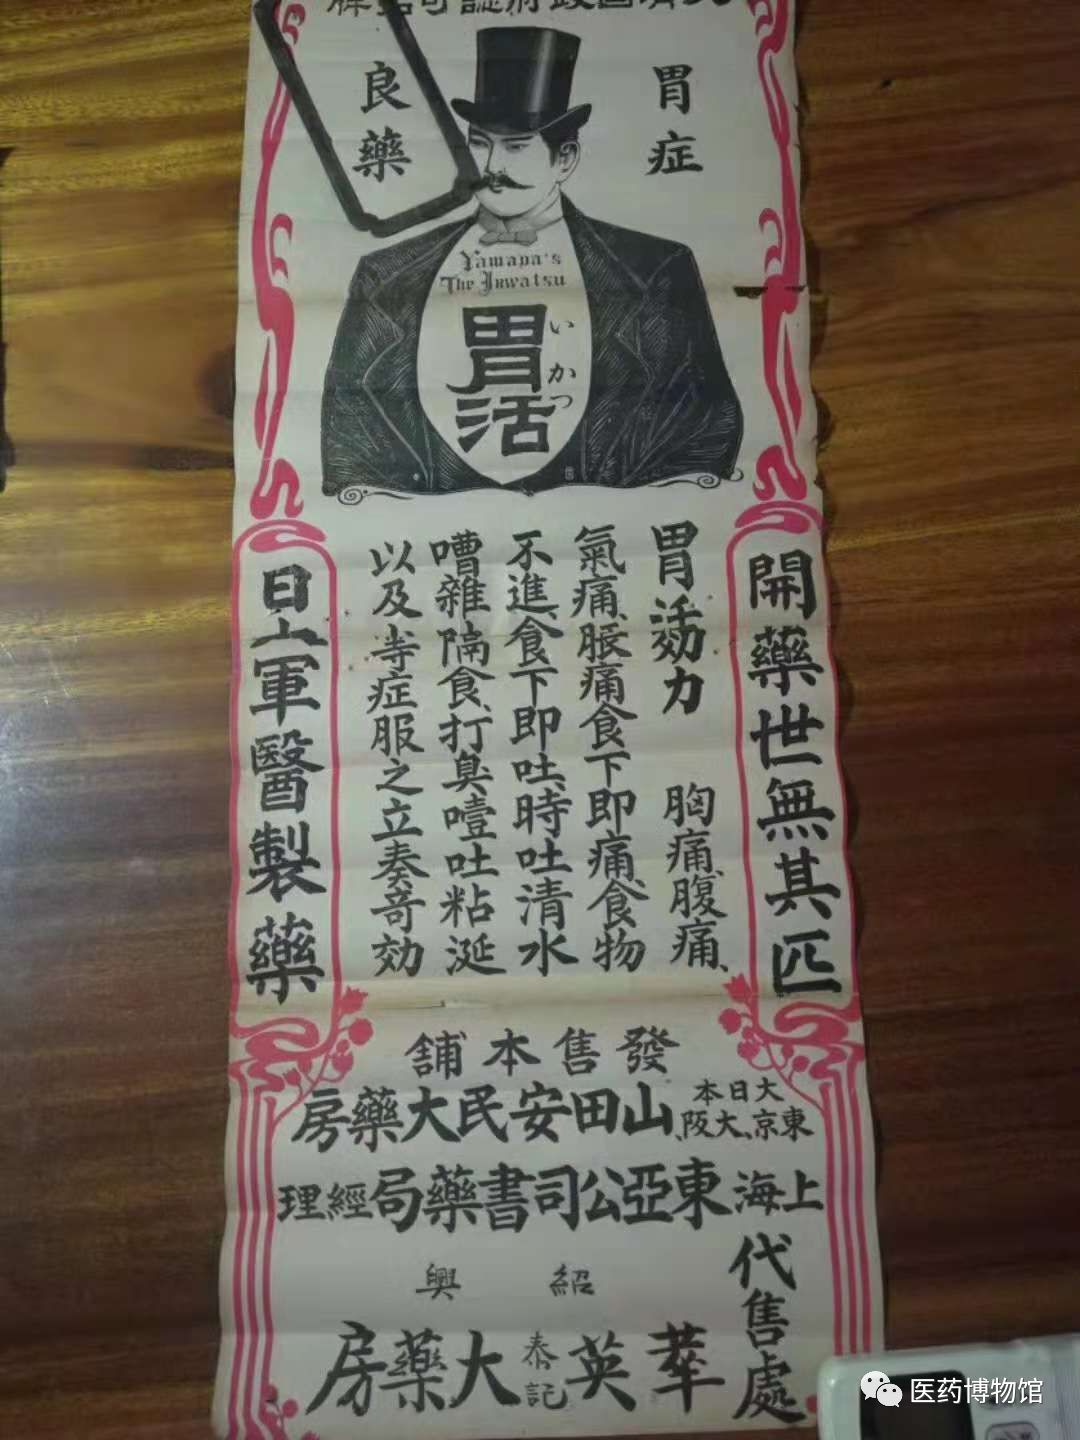 胃症
良藥
Yamada's
The Juwatsu
胃活
いかつ
開藥世無其匹
胃活効力 胸痛、腹痛、
氣痛、脹痛食下即痛、食物
不進、食下即吐、時吐清水
嘈雜隔食、打臭噎吐粘涎
以及等症服之立奏奇効
日軍醫製藥
發售本舖
大日本
東京、大阪、山田安民大藥房
上海東亞公司書藥局經理
代售處
紹興
華英泰記大藥房
医药博物馆